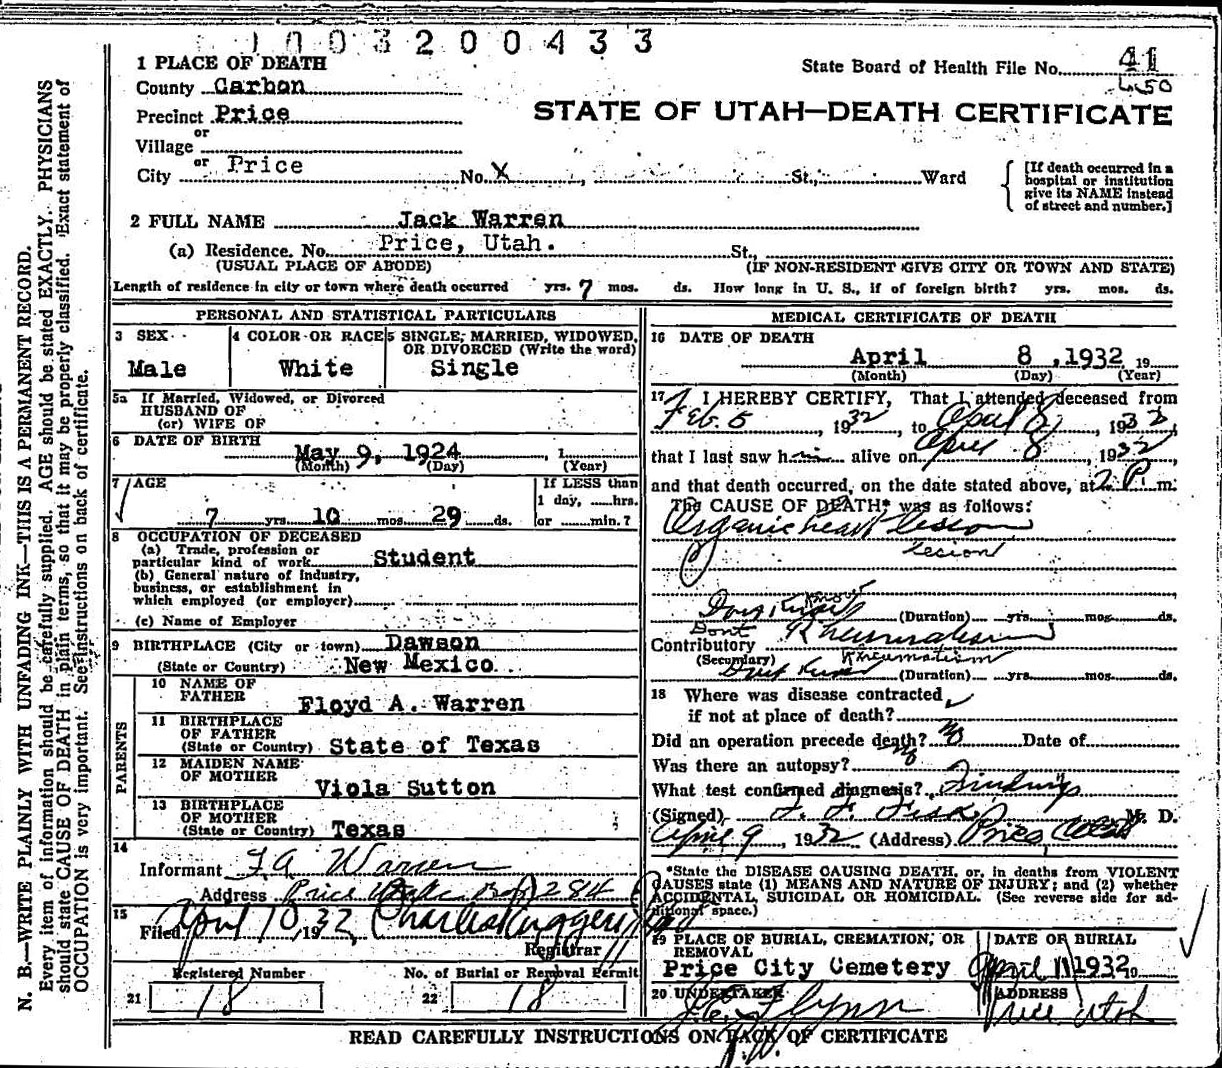 1003200433
1 PLACE OF DEATH
State Board of Health File No. 41
County Carbon
Precinct Price
STATE OF UTAH—DEATH CERTIFICATE
or
Village
or
City Price No. X , St., Ward
[If death occurred in a
hospital or institution
give its NAME instead
of street and number.]
2 FULL NAME Jack Warren
(a) Residence. No. Price, Utah. St.,
(USUAL PLACE OF ABODE) (IF NON-RESIDENT GIVE CITY OR TOWN AND STATE)
Length of residence in city or town where death occurred yrs. 7 mos. ds. How long in U. S., if of foreign birth? yrs. mos. ds.
PERSONAL AND STATISTICAL PARTICULARS
3 SEX
Male
4 COLOR OR RACE
White
5 SINGLE, MARRIED, WIDOWED,
OR DIVORCED (Write the word)
Single
5a If Married, Widowed, or Divorced
HUSBAND OF
(or) WIFE OF
6 DATE OF BIRTH
May 9, 1924 , 1
(Month) (Day) (Year)
7 AGE
7 yrs. 10 mos. 29 ds.
If LESS than
1 day, hrs.
or min.?
8 OCCUPATION OF DECEASED
(a) Trade, profession or
particular kind of work Student
(b) General nature of industry,
business, or establishment in
which employed (or employer)
(c) Name of Employer
9 BIRTHPLACE (City or town) Dawson
(State or Country) New Mexico
PARENTS
10 NAME OF
FATHER
Floyd A. Warren
11 BIRTHPLACE
OF FATHER
(State or Country) State of Texas
12 MAIDEN NAME
OF MOTHER
Viola Sutton
13 BIRTHPLACE
OF MOTHER
(State or Country) Texas
14
Informant F A Warren
Address Price Utah Box 284
15
Filed April 10 1932, Charles Ruggeri
Registrar
Registered Number
21 18
No. of Burial or Removal Permit
22 18
MEDICAL CERTIFICATE OF DEATH
16 DATE OF DEATH
April 8, 1932 19
(Month) (Day) (Year)
17 I HEREBY CERTIFY, That I attended deceased from
Feb. 5, 1932, to April 8, 1932,
that I last saw him alive on April 8, 1932,
and that death occurred, on the date stated above, at 2 P. m.
The CAUSE OF DEATH* was as follows:
Organic heart lesion
lesion
Don't Know
(Duration) yrs. mos. ds.
Dont
Contributory Rheumatism
(Secondary) Rheumatism
Don't Know (Duration) yrs. mos. ds.
18 Where was disease contracted
if not at place of death?
Did an operation precede death? No Date of
Was there an autopsy? No
What test confirmed diagnosis? Findings
(Signed) F. F. Fisk, M. D.
April 9, 1932 (Address) Price, Utah
*State the DISEASE CAUSING DEATH, or, in deaths from VIOLENT
CAUSES state (1) MEANS AND NATURE OF INJURY; and (2) whether
ACCIDENTAL, SUICIDAL OR HOMICIDAL. (See reverse side for ad-
ditional space.)
19 PLACE OF BURIAL, CREMATION, OR
REMOVAL
Price City Cemetery
DATE OF BURIAL
April 11 1932 19
20 UNDERTAKER
J. E. Flynn
ADDRESS
Price Utah
READ CAREFULLY INSTRUCTIONS ON BACK OF CERTIFICATE
N. B.—WRITE PLAINLY WITH UNFADING INK—THIS IS A PERMANENT RECORD.
Every item of information should be carefully supplied. AGE should be stated EXACTLY. PHYSICIANS
should state CAUSE OF DEATH in plain terms, so that it may be properly classified. Exact statement of
OCCUPATION is very important. See instructions on back of certificate.